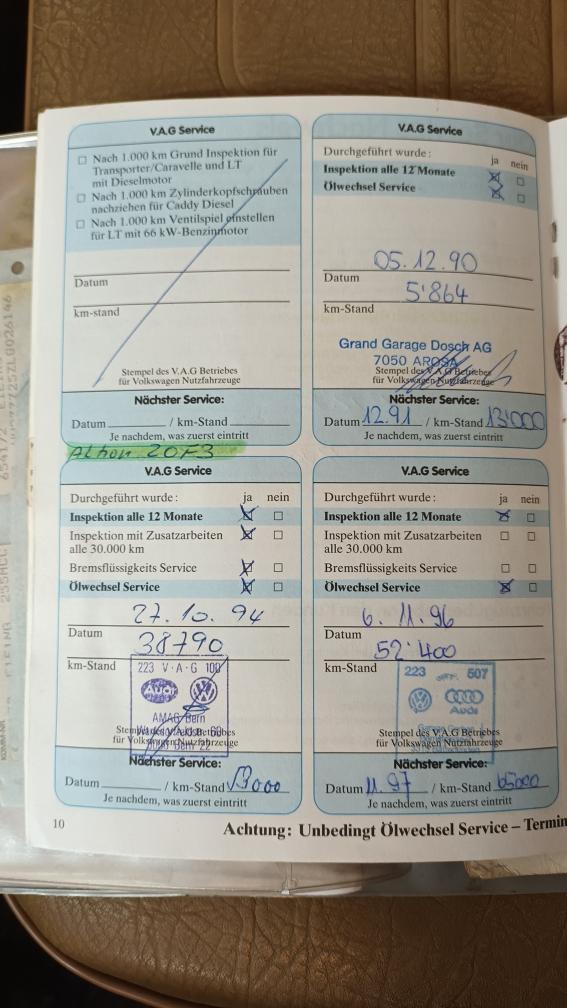 V.A.G Service
Nach 1.000 km Grund Inspektion für
Transporter/Caravelle und LT
mit Dieselmotor
Nach 1.000 km Zylinderkopfschrauben
nachziehen für Caddy Diesel
Nach 1.000 km Ventilspiel einstellen
für LT mit 66 kW-Benzinmotor
Datum
km-stand
Stempel des V.A.G Betriebes
für Volkswagen Nutzfahrzeuge
Nächster Service:
Datum / km-Stand
Je nachdem, was zuerst eintritt
V.A.G Service
Durchgeführt wurde :
ja nein
Inspektion alle 12 Monate
Ölwechsel Service
05.12.90
Datum
5'864
km-Stand
Grand Garage Dosch AG
7050 AROSA
Stempel des V.A.G Betriebes
für Volkswagen Nutzfahrzeuge
Nächster Service:
Datum 12.91 / km-Stand 13'000
Je nachdem, was zuerst eintritt
V.A.G Service
Durchgeführt wurde : ja nein
Inspektion alle 12 Monate
Inspektion mit Zusatzarbeiten
alle 30.000 km
Bremsflüssigkeits Service
Ölwechsel Service
27.10.94
Datum
38790
km-Stand
223 V·A·G
Audi
AMAG Bern
Stempel des V.A.G Betriebes
für Volkswagen Nutzfahrzeuge
Nächster Service:
Datum / km-Stand 53000
Je nachdem, was zuerst eintritt
V.A.G Service
Durchgeführt wurde : ja nein
Inspektion alle 12 Monate
Inspektion mit Zusatzarbeiten
alle 30.000 km
Bremsflüssigkeits Service
Ölwechsel Service
6.11.96
Datum
52'400
km-Stand
223 507
Audi
Stempel des V.A.G Betriebes
für Volkswagen Nutzfahrzeuge
Nächster Service:
Datum 11.97 / km-Stand 65000
Je nachdem, was zuerst eintritt
10
Achtung: Unbedingt Ölwechsel Service – Termin